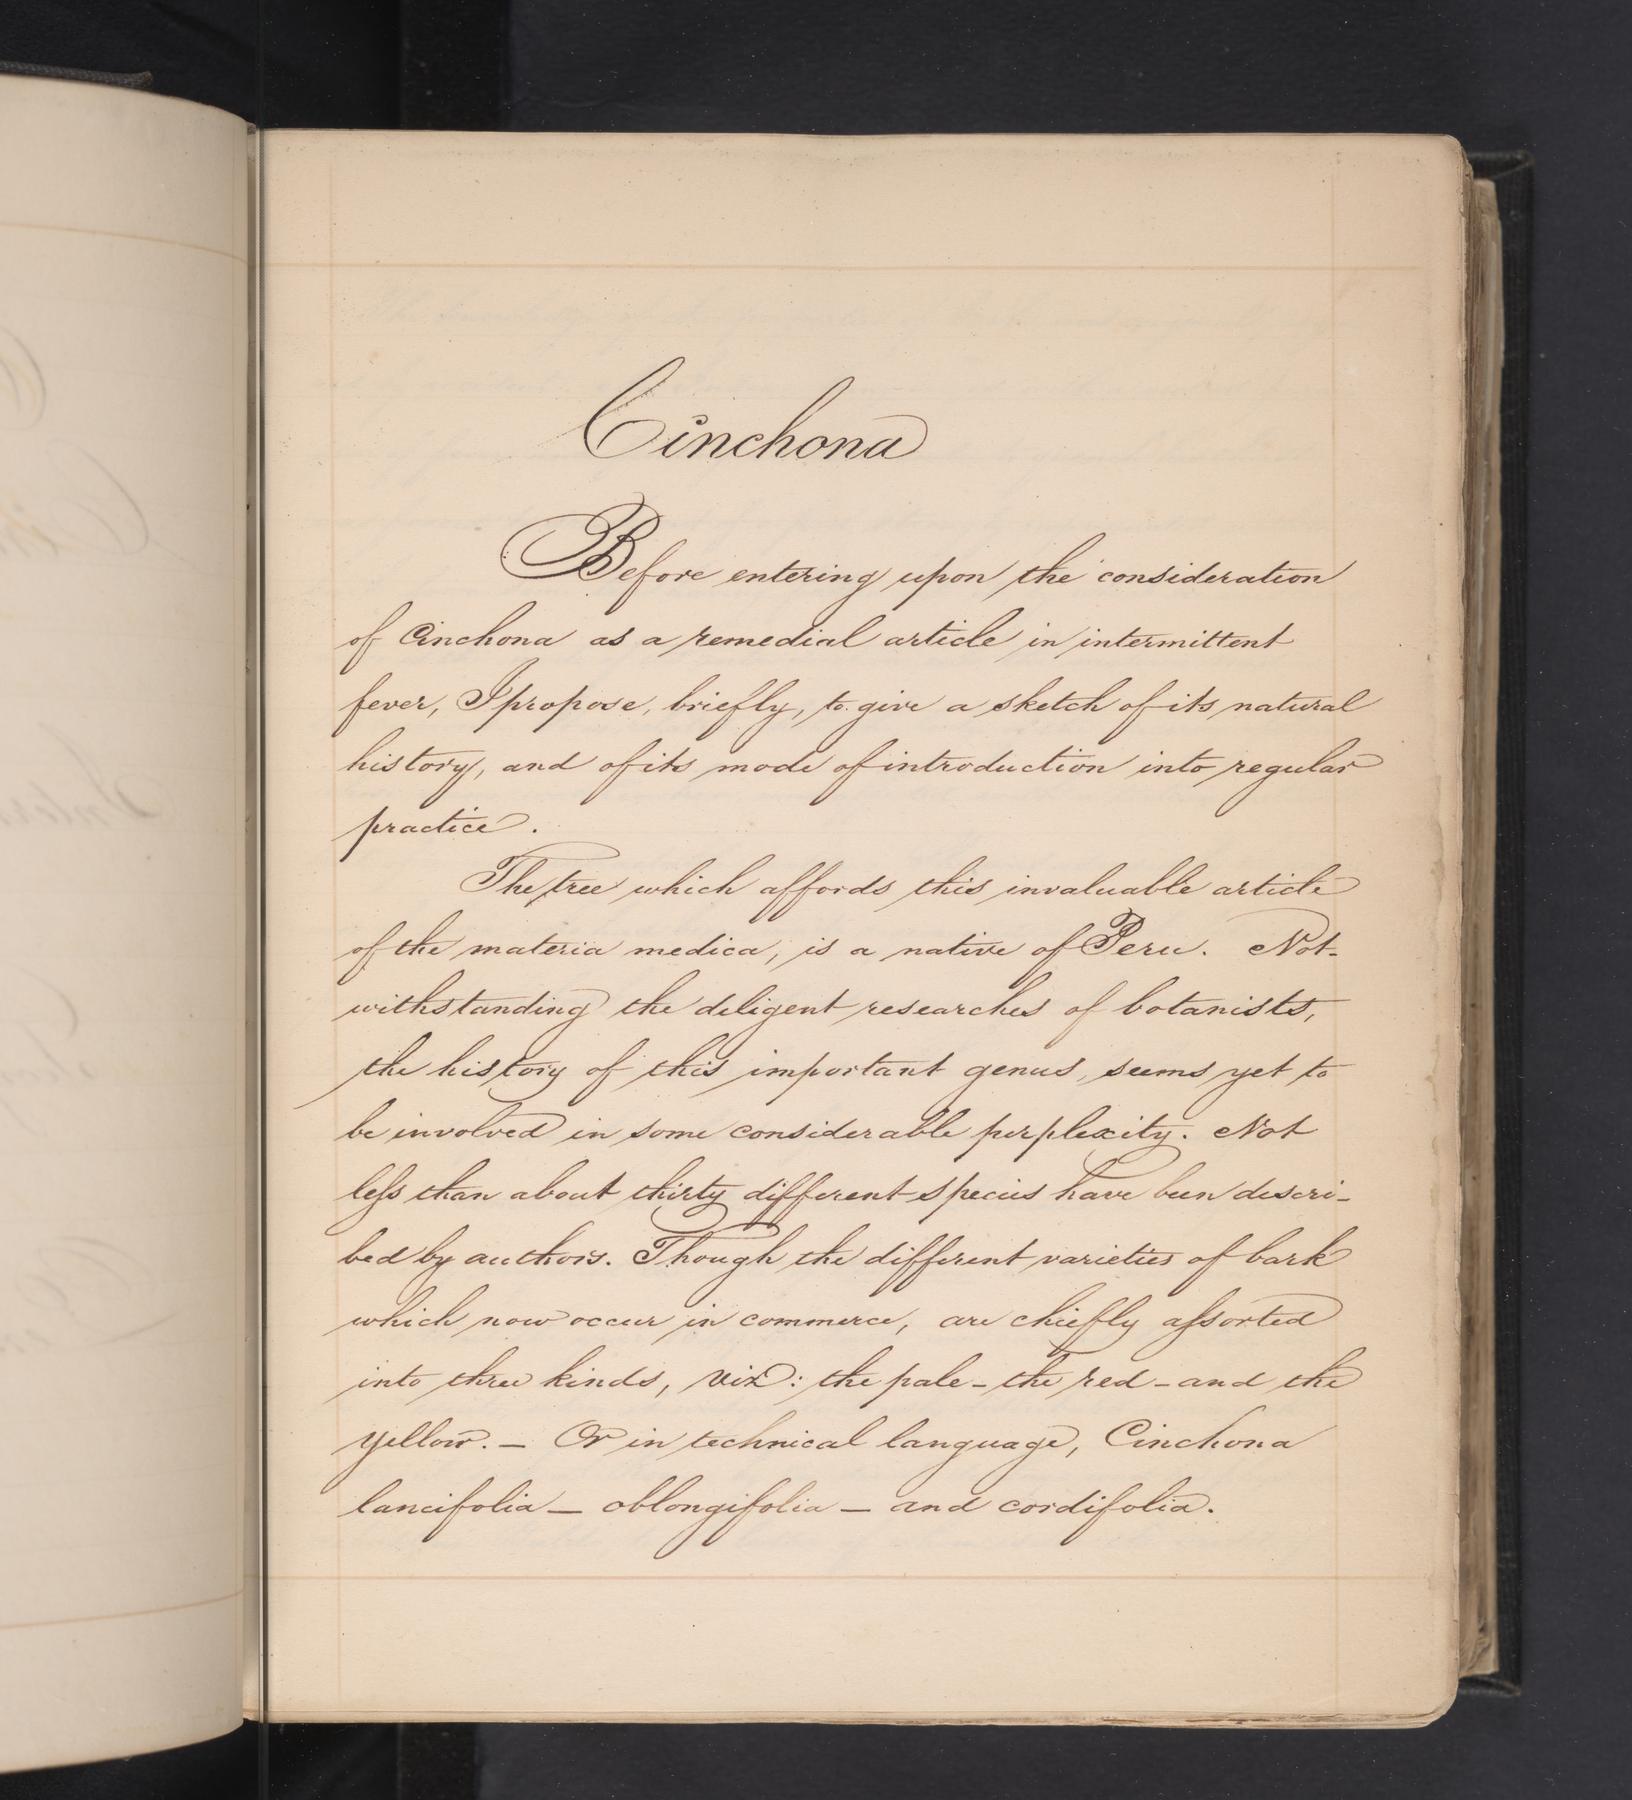 Cinchona
Before entering upon the consideration
of Cinchona as a remedial article in intermittent
fever, I propose, briefly, to give a sketch of its natural
history, and of its mode of introduction into regular
practice.
The tree which affords this invaluable article
of the materia medica, is a native of Peru. Not-
withstanding the diligent researches of botanists,
the history of this important genus, seems yet to
be involved in some considerable perplexity. Not
leſs than about thirty different species have been descri-
bed by authors. Though the different varieties of bark
which now occur in commerce, are chiefly aſsorted
into three kinds, viz: the pale - the red - and the
yellow. — Or in technical language, Cinchona
lancifolia — oblongifolia — and cordifolia.